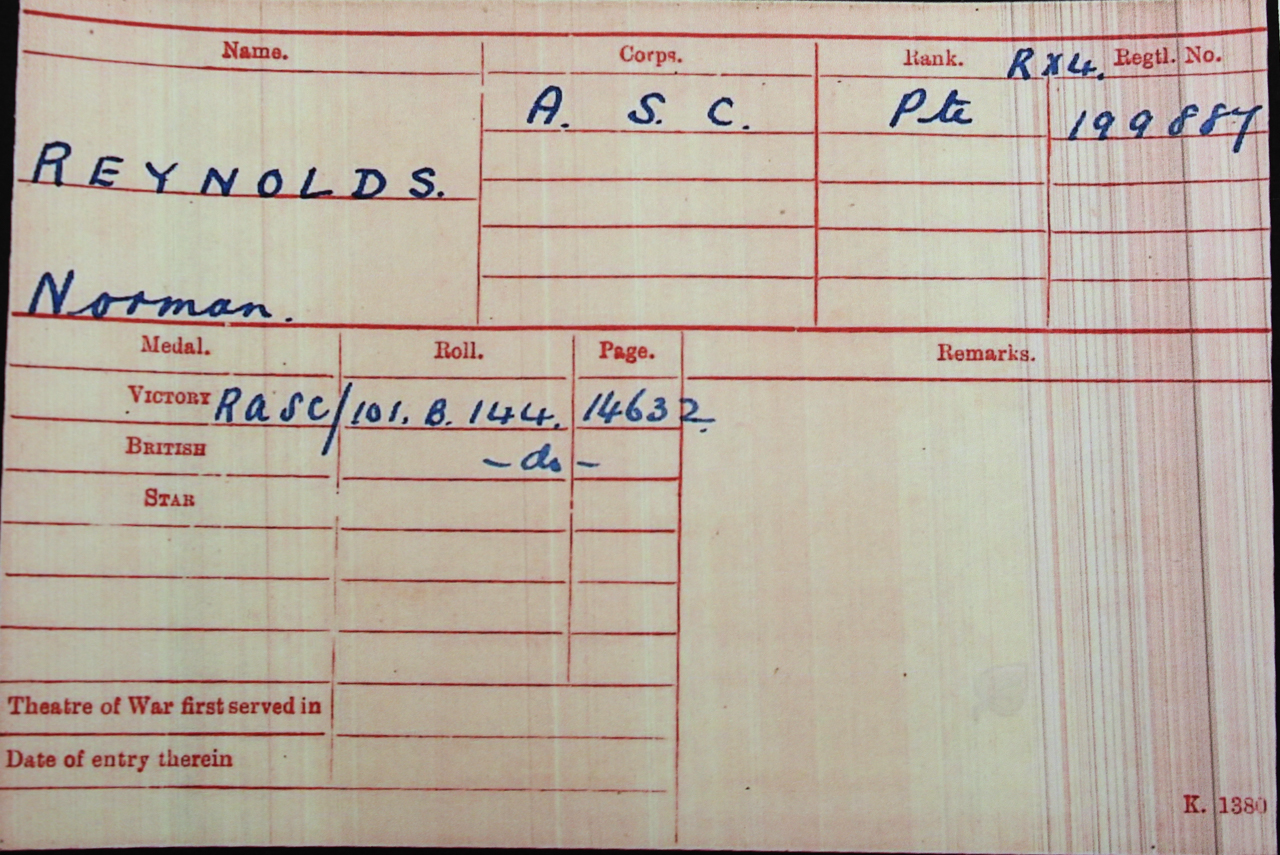 Name. Corps. Rank. R×4. Regtl. No.
A. S. C. Pte 199887
REYNOLDS.
Norman.
Medal. Roll. Page. Remarks.
VICTORY RASC/101. B. 144. 14632.
BRITISH -do-
STAR
Theatre of War first served in
Date of entry therein
K. 1380